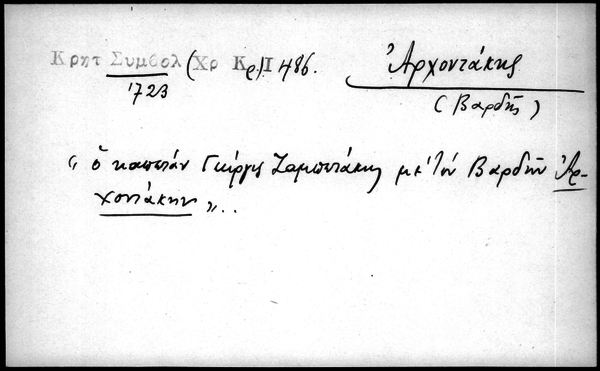 Κρητ Συμβολ (Χρ Κρ) Ι 486.
1723
Ἀρχοντάκης
(Βαρδῆς)
"ὁ καπετάν Γιώργης μὲ τόν Βαρδῆν Ἀρ-
χοντάκην"..